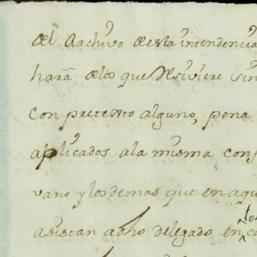 del Archivo de esta intendencia
hará de los que
con pretexto alguno, pena
aplicados a la misma con
vano y los demas que en aqu
asistan a dho delegado en co